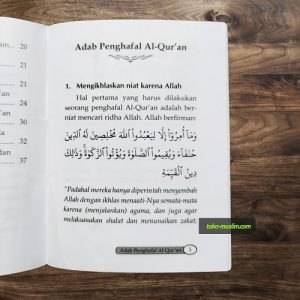 Adab Penghafal Al-Qur'an
1. Mengikhlaskan niat karena Allah
Hal pertama yang harus dilakukan
seorang penghafal Al-Qur'an adalah ber-
niat mencari ridha Allah. Allah berfirman:
وَمَآ أُمِرُوٓا۟ إِلَّا لِيَعْبُدُوا۟ ٱللَّهَ مُخْلِصِينَ لَهُ ٱلدِّينَ
حُنَفَآءَ وَيُقِيمُوا۟ ٱلصَّلَوٰةَ وَيُؤْتُوا۟ ٱلزَّكَوٰةَ وَذَٰلِكَ
دِينُ ٱلْقَيِّمَةِ
"Padahal mereka hanya diperintah menyembah
Allah dengan ikhlas menaati-Nya semata-mata
karena (menjalankan) agama, dan juga agar
melaksanakan shalat dan menunaikan zakat;
toko-muslim.com
Adab Penghafal Al-Qur'an 5
20
20
21
22
24
dan
27
37